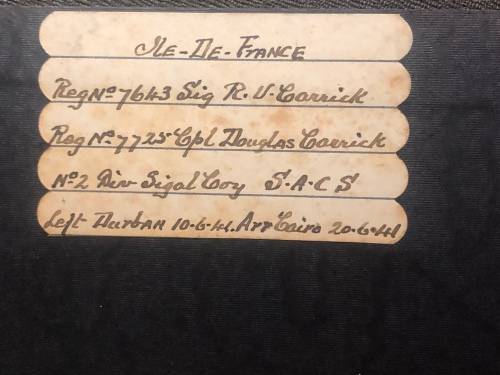 ILE-DE-FRANCE
Reg No 7643 Sig R.V. Carrick
Reg No 7725 Cpl Douglas Carrick
No 2 Div Sigal Coy S.A.C S
Left Durban 10.6.41. Arr Cairo 20.6.41